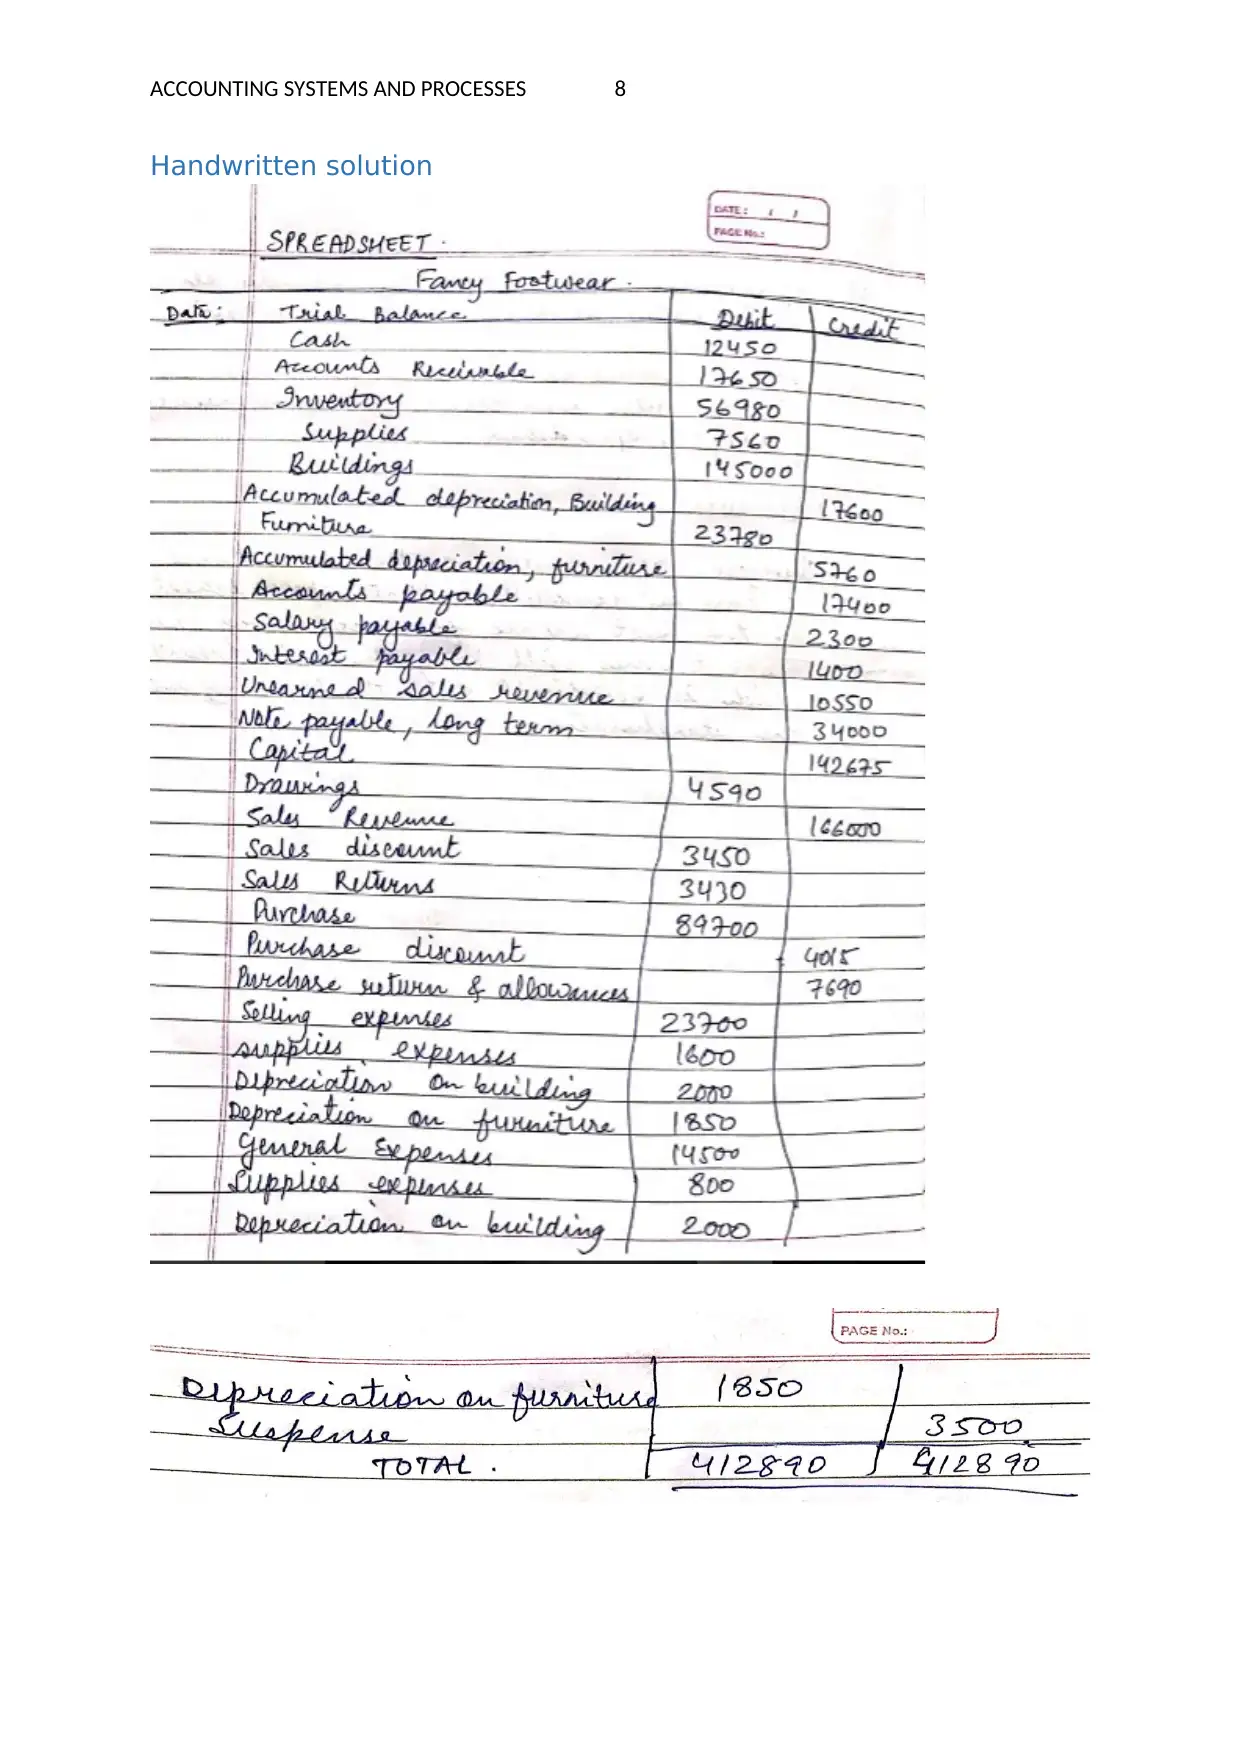 ACCOUNTING SYSTEMS AND PROCESSES 8
Handwritten solution
DATE: / /
PAGE No.:
SPREADSHEET.
Fancy Footwear.
Date: Trial Balance Debit Credit
Cash 12450
Accounts Receivable 17650
Inventory 56980
Supplies 7560
Buildings 145000
Accumulated depreciation, Building 17600
Furniture 23780
Accumulated depreciation, furniture 5760
Accounts payable 17400
Salary payable 2300
Interest payable 1400
Unearned sales revenue 10550
Note payable, long term 34000
Capital 142675
Drawings 4590
Sales Revenue 166000
Sales discount 3450
Sales Returns 3430
Purchase 89700
Purchase discount 4015
Purchase return & allowances 7690
Selling expenses 23700
supplies expenses 1600
Depreciation on building 2000
Depreciation on furniture 1850
General Expenses 14500
Supplies expenses 800
Depreciation on building 2000
PAGE No.:
Depreciation on furniture 1850
Suspense 3500
TOTAL. 412890 412890